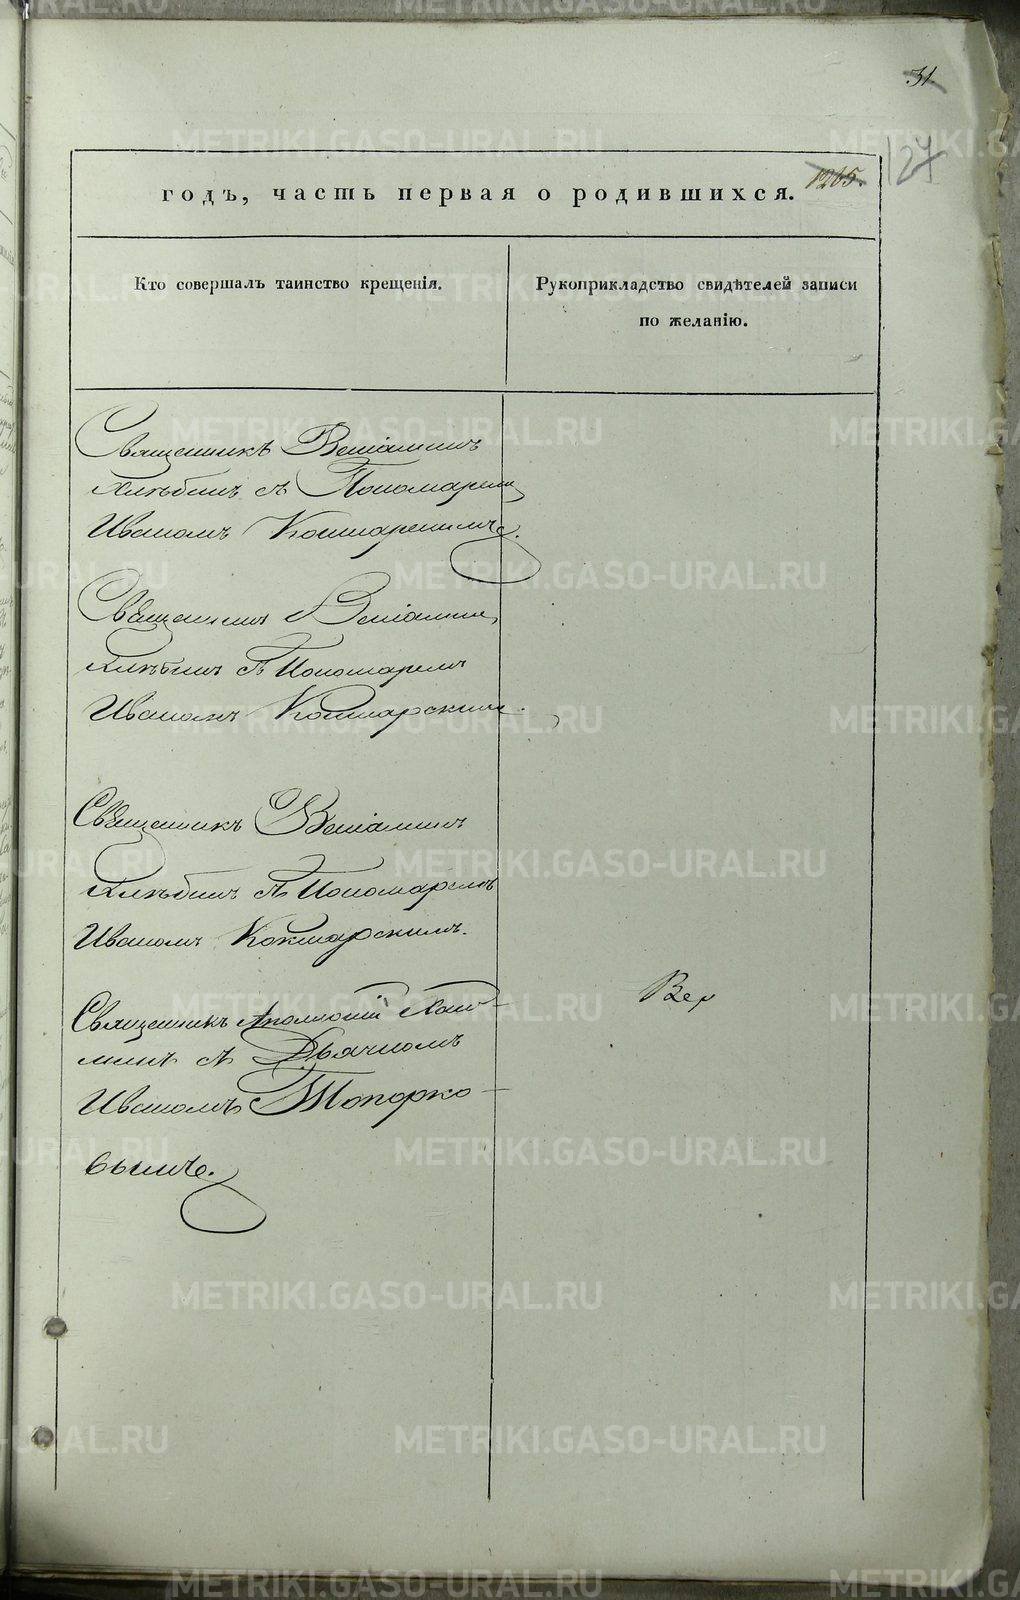 31.
1265.
127
годъ, часть первая о родившихся.
Кто совершалъ таинство крещенія.
Рукоприкладство свидѣтелей записи
по желанію.
Священникъ Веніаминъ
Хлѣбинъ съ Пономаремъ
Иваномъ Кокшарскимъ.
Священникъ Веніаминъ
Хлѣбинъ съ Пономаремъ
Иваномъ Кокшарскимъ.
Священникъ Веніаминъ
Хлѣбинъ съ Пономаремъ
Иваномъ Кокшарскимъ.
Священникъ
съ Дьячкомъ
Иваномъ Топорко-
вымъ.
METRIKI.GASO-URAL.RU